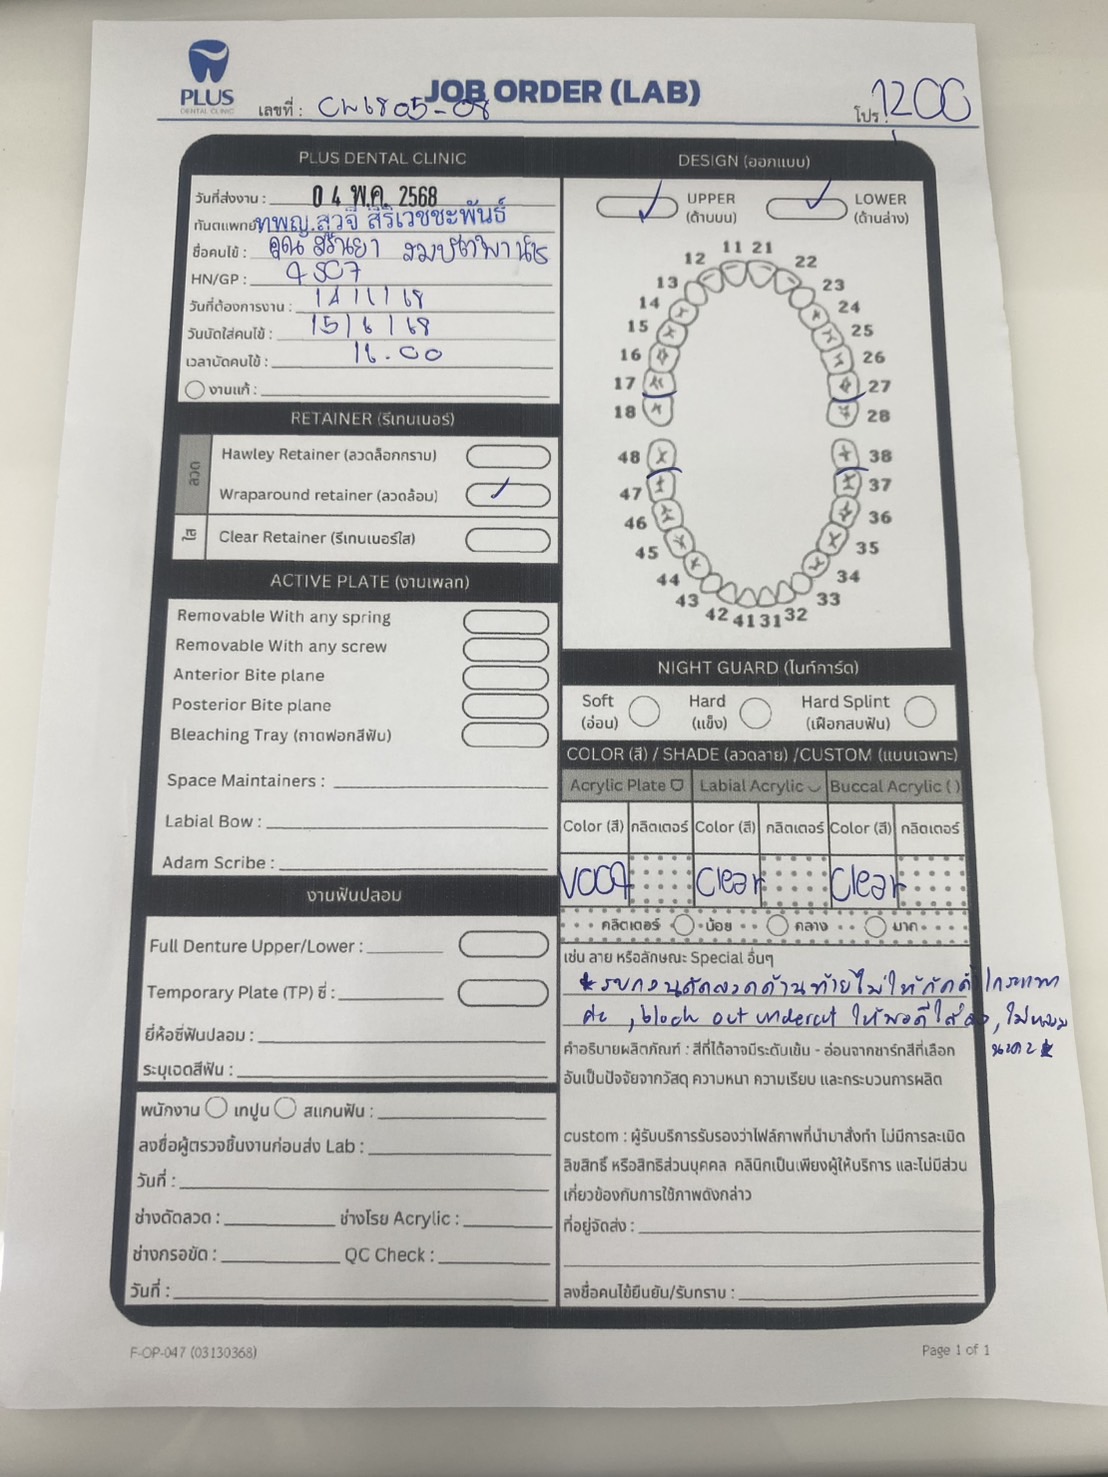 PLUS
DENTAL CLINIC
JOB ORDER (LAB)
เลขที่ : CW6805-08
โปร : 1200
PLUS DENTAL CLINIC
วันที่ส่งงาน : 04 พ.ค. 2568
ทันตแพทย์ ทพญ.สุวจี สิริเวชชะพันธ์
ชื่อคนไข้ : คุณ
HN/GP :
วันที่ต้องการงาน :
วันนัดใส่คนไข้ : 15/6/68
เวลานัดคนไข้ : 16.00
งานแก้ :
RETAINER (รีเทนเนอร์)
ลวด
Hawley Retainer (ลวดล็อกกราม)
Wraparound retainer (ลวดล้อม)
ใส
Clear Retainer (รีเทนเนอร์ใส)
ACTIVE PLATE (งานเพลท)
Removable With any spring
Removable With any screw
Anterior Bite plane
Posterior Bite plane
Bleaching Tray (ถาดฟอกสีฟัน)
Space Maintainers :
Labial Bow :
Adam Scribe :
งานฟันปลอม
Full Denture Upper/Lower :
Temporary Plate (TP) ซี่ :
ยี่ห้อซี่ฟันปลอม :
ระบุเฉดสีฟัน :
พนักงาน เทปูน สแกนฟัน :
ลงชื่อผู้ตรวจชิ้นงานก่อนส่ง Lab :
วันที่ :
ช่างดัดลวด : ช่างโรย Acrylic :
ช่างกรอขัด : QC Check :
วันที่ :
DESIGN (ออกแบบ)
UPPER LOWER
(ด้านบน) (ด้านล่าง)
11 21
12 22
13 23
14 24
15 25
16 26
17 27
18 28
48 38
47 37
46 36
45 35
44 34
43 33
42 41 31 32
NIGHT GUARD (ไนท์การ์ด)
Soft Hard Hard Splint
(อ่อน) (แข็ง) (เฝือกสบฟัน)
COLOR (สี) / SHADE (ลวดลาย) /CUSTOM (แบบเฉพาะ)
Acrylic Plate Labial Acrylic Buccal Acrylic ( )
Color (สี) กลิตเตอร์ Color (สี) กลิตเตอร์ Color (สี) กลิตเตอร์
Clear Clear
กลิตเตอร์ น้อย กลาง มาก
เช่น ลาย หรือลักษณะ Special อื่นๆ
*รบกวนดัดลวดด้านท้ายไม่ให้กัดโดน
ค่ะ , block out undercut ให้พอดีใส่ลง, ไม่หลวม
นะคะ*
คำอธิบายผลิตภัณฑ์ : สีที่ได้อาจมีระดับเข้ม - อ่อนจากชาร์ทสีที่เลือก
อันเป็นปัจจัยจากวัสดุ ความหนา ความเรียบ และกระบวนการผลิต
custom : ผู้รับบริการรับรองว่าไฟล์ภาพที่นำมาสั่งทำ ไม่มีการละเมิด
ลิขสิทธิ์ หรือสิทธิส่วนบุคคล คลินิกเป็นเพียงผู้ให้บริการ และไม่มีส่วน
เกี่ยวข้องกับการใช้ภาพดังกล่าว
ที่อยู่จัดส่ง :
ลงชื่อคนไข้ยืนยัน/รับทราบ :
F-OP-047 (03130368)
Page 1 of 1